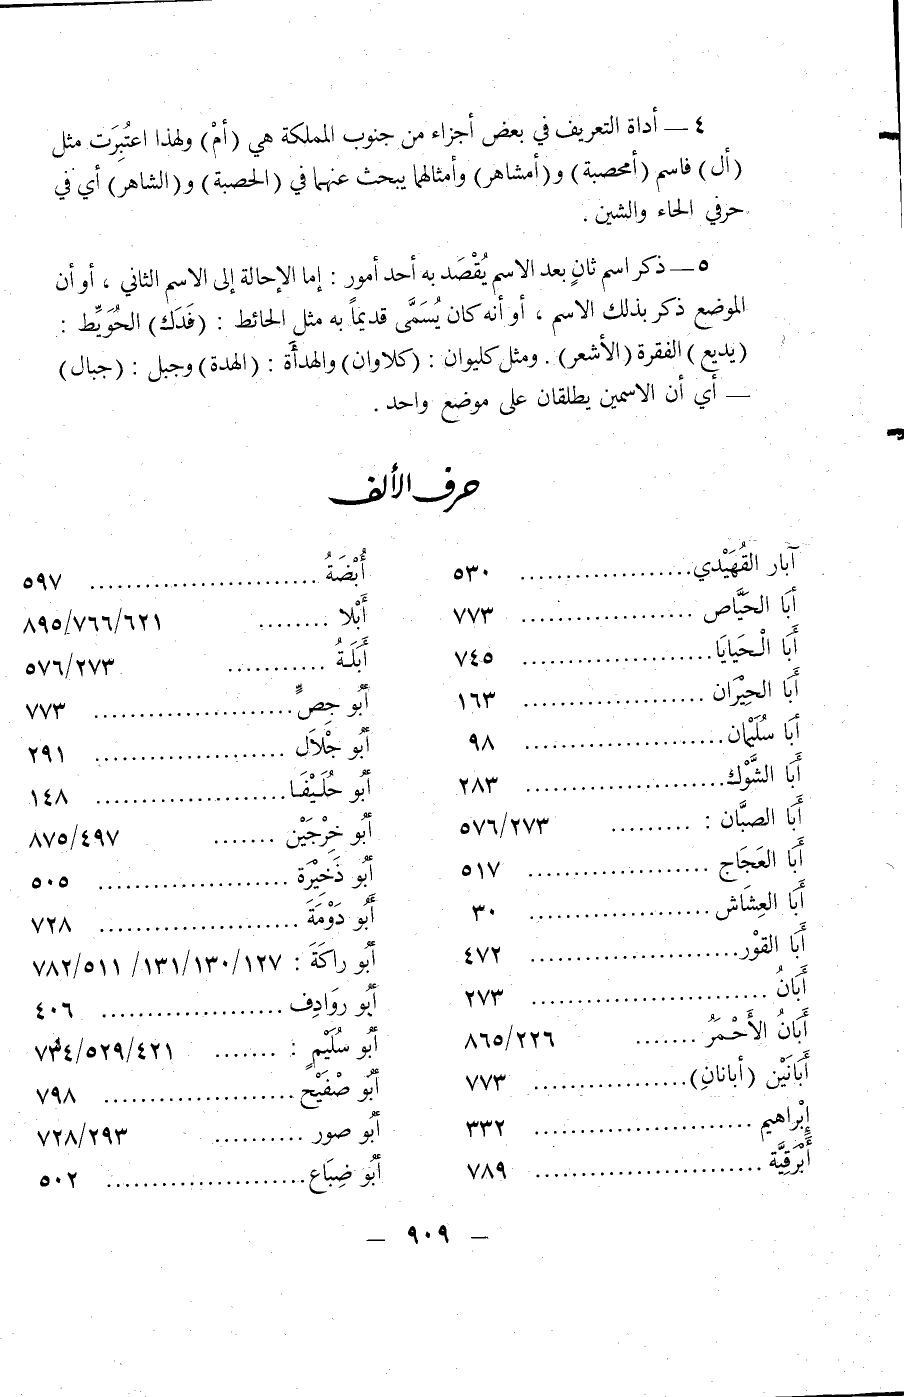 ٤ — أداة التعريف في بعض أجزاء من جنوب المملكة هي (أمْ) ولهذا اعتُبِرَت مثل
(أل) فاسم (أمحصبة) و(أمشاهر) وأمثالهما يبحث عنهما في (الحصبة) و(الشاهر) أي في
حرفي الحاء والشين .
٥ — ذكر اسم ثانٍ بعد الاسم يُقْصَد به أحد أمور : إما الإحالة إلى الاسم الثاني ، أو أن
الموضع ذكر بذلك الاسم ، أو أنه كان يُسَمَّى قديماً به مثل الحائط : (فَدَك) الحُوَيِّط :
(يديع) الفقرة (الأشعر) . ومثل كليوان : (كلاوان) والهدأة : (الهدة) وجبل : (جبال)
— أي أن الاسمين يطلقان على موضع واحد .
حرف الألف
آبار القُهَيْدي ................... ٥٣٠
أبَا الحَيَّاص ................... ٧٧٣
أبَا الْحَيايَا ................... ٧٤٥
أبَا الحِيْرَان ................... ١٦٣
أبَا سُلَيْمان ................... ٩٨
أبَا الشَّوْك ................... ٢٨٣
أبَا الصبَّان : ......... ٥٧٦/٢٧٣
أبَا العَجَاج ................... ٥١٧
أبَا العِشَاش ................... ٣٠
أبَا القوْر ................... ٤٧٢
أَبَانُ ................... ٢٧٣
أَبَانُ الأَحْمَرُ ....... ٨٦٥/٢٢٦
أَبَانَيْن (أبانانِ) ................. ٧٧٣
إبْراهيم ................... ٣٣٢
أَبْرَقِيَّة ................... ٧٨٩
أُبْضَةُ ................... ٥٩٧
أَبْلا ........ ٨٩٥/٧٦٦/٦٢١
أَبَلَةُ ........... ٥٧٦/٢٧٣
أبُو جِصٍّ ................... ٧٧٣
أبُو جْلَال ................... ٢٩١
أبُو حُلَيْفَا ................... ١٤٨
أبُو خِرْجَيْن ....... ٨٧٥/٤٩٧
أبُو ذَخِيْرَة ................... ٥٠٥
أَبُو دَوْمَةَ ................... ٧٢٨
أبُو راكَةَ : ١٢٧/ ١٣٠/ ١٣١/ ٧٨٢/٥١١
أبُو روَادِف ................... ٤٠٦
أبُو سُلَيْمٍ : ....... ٧٣٤/٥٢٩/٤٢١
أبُو صْفَيْح ................... ٧٩٨
أبُو صور .......... ٧٢٨/٢٩٣
أبُو ضِبَاع ................... ٥٠٢
— ٩٠٩ —